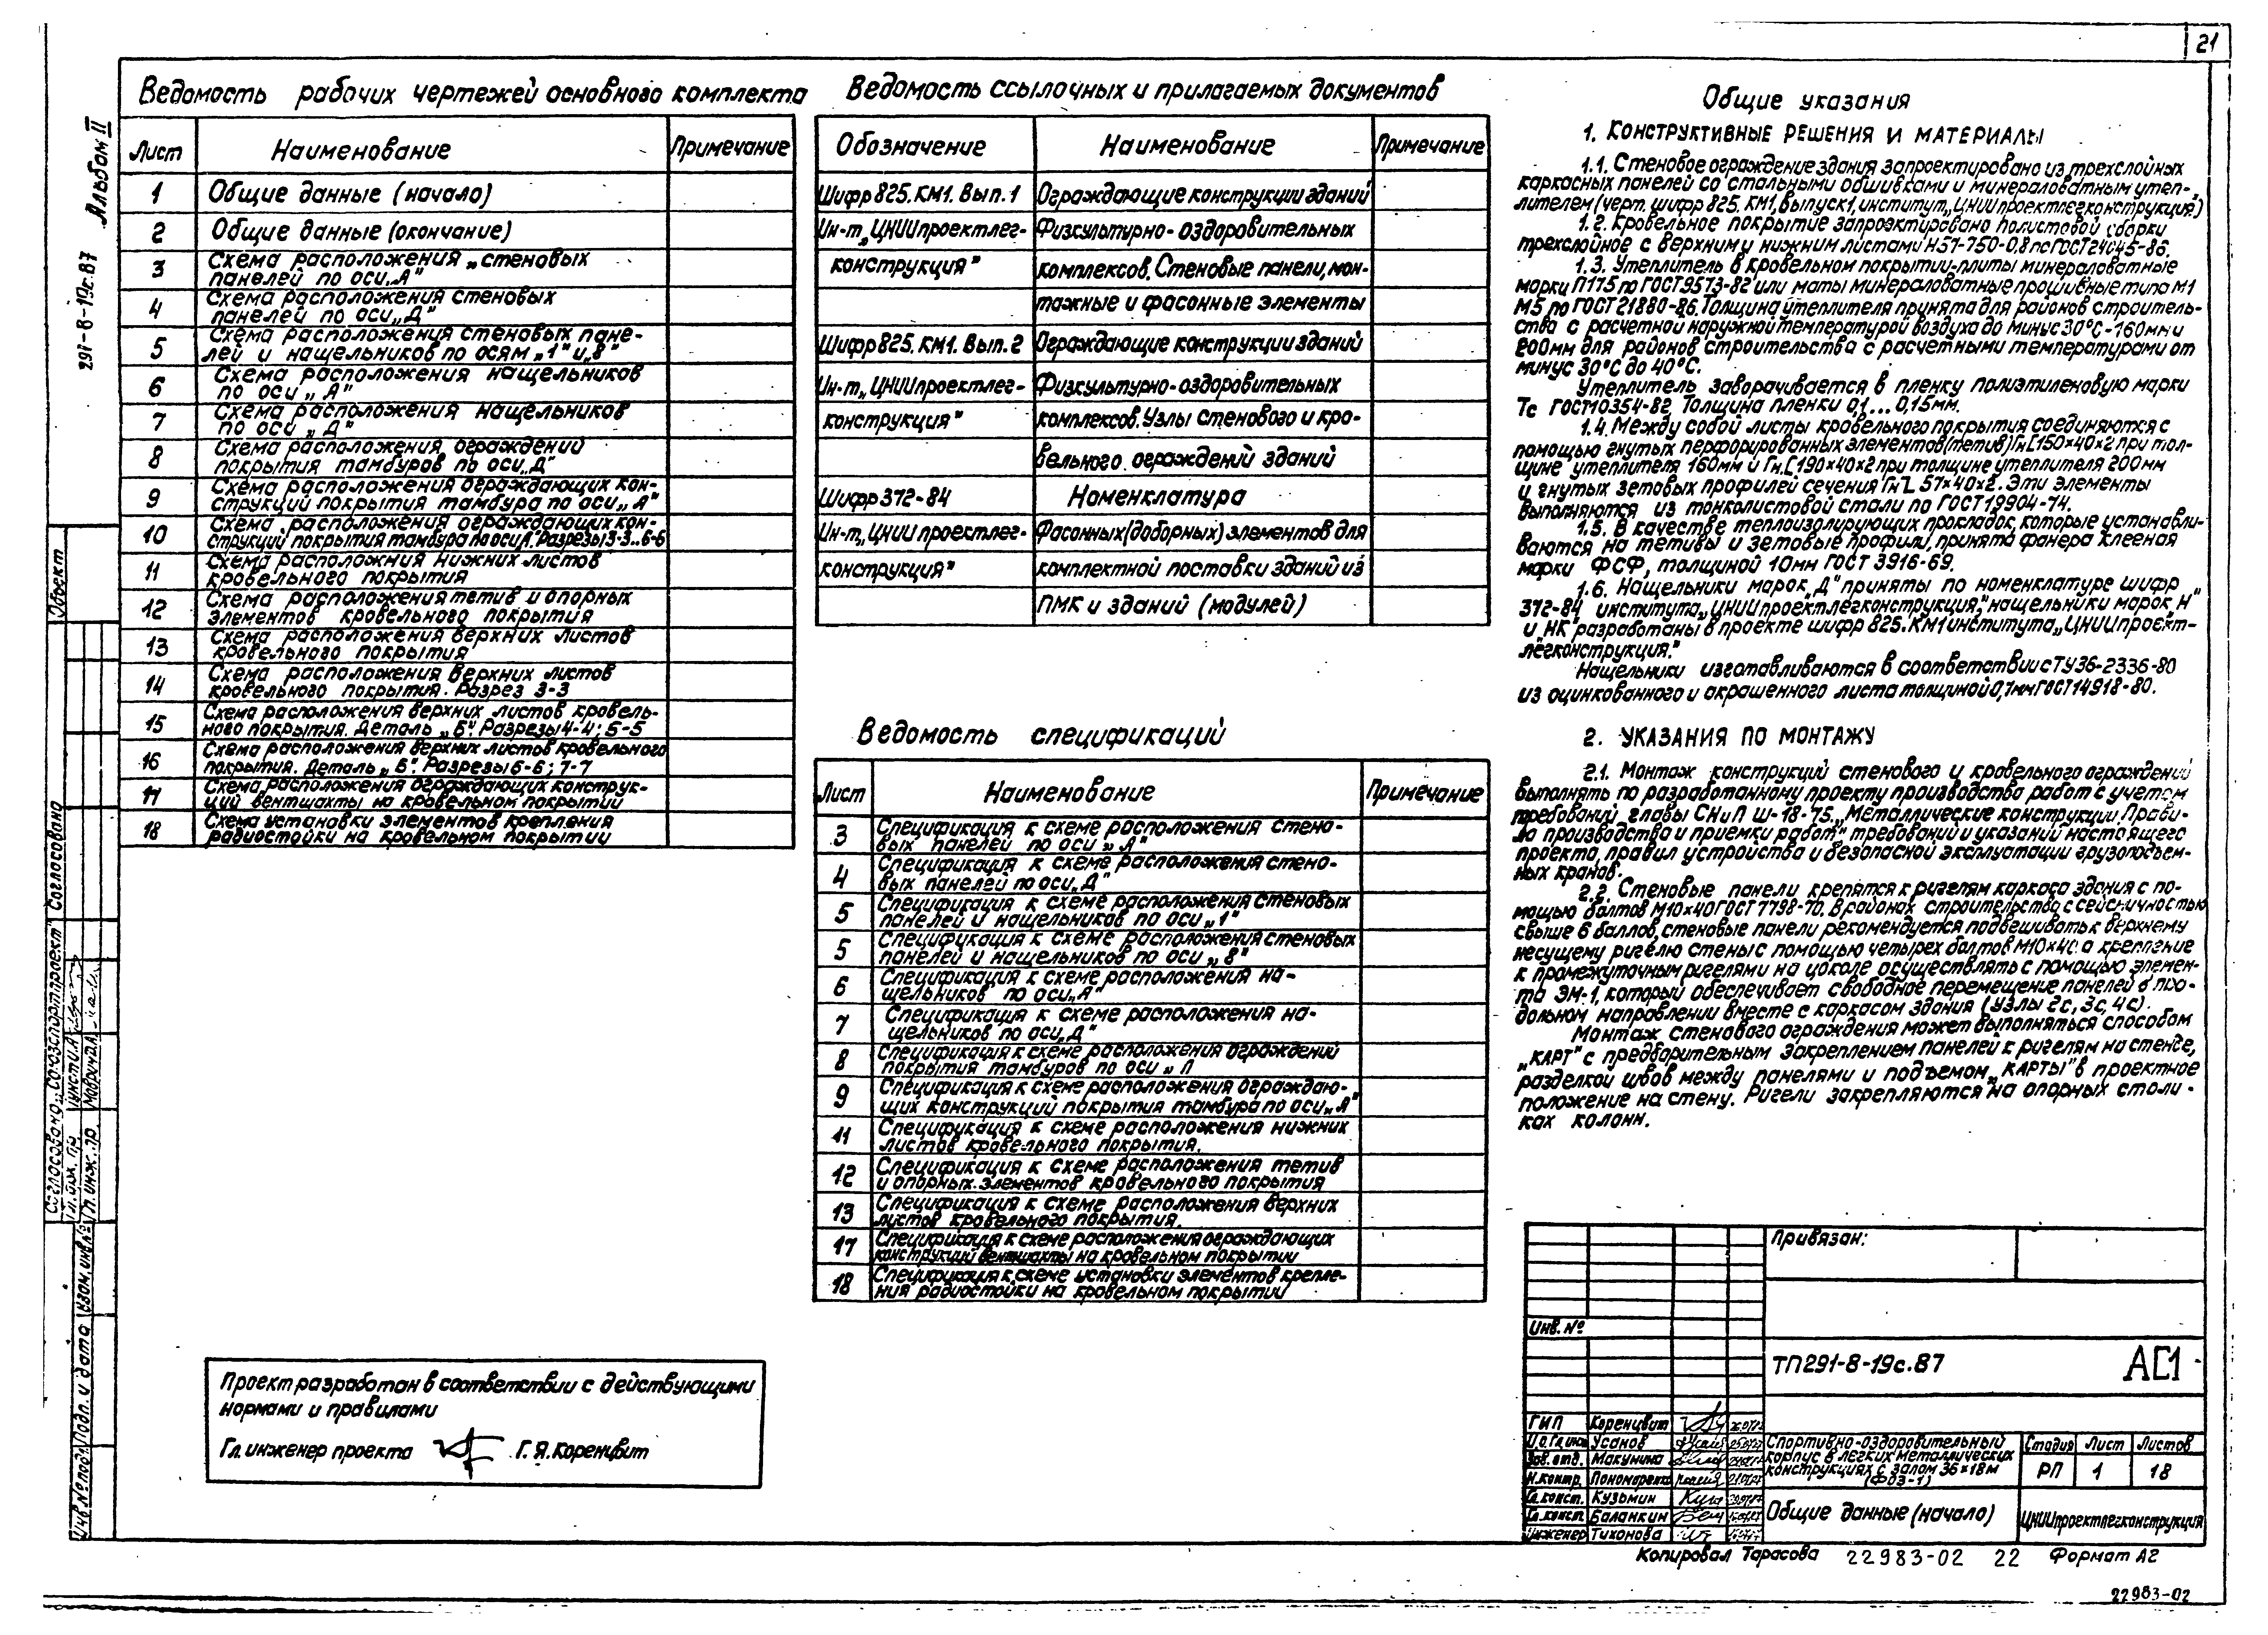 21
Альбом II
291-8-19с.87
Ведомость рабочих чертежей основного комплекта
Лист Наименование Примечание
1 Общие данные (начало)
2 Общие данные (окончание)
3 Схема расположения „стеновых
панелей по оси„А"
4 Схема расположения стеновых
панелей по оси„Д"
5 Схема расположения стеновых пане-
лей и нащельников по осям „1" и„8"
6 Схема расположения нащельников
по оси „А"
7 Схема расположения нащельников
по оси „Д"
8 Схема расположения ограждений
покрытия тамбуров по оси„Д"
9 Схема расположения ограждающих кон-
струкций покрытия тамбура по оси„А"
10 Схема расположения ограждающих кон-
струкций покрытия тамбура по оси А. Разрезы 3-3..6-6
11 Схема расположния нижних листов
кровельного покрытия
12 Схема расположения тетив и опорных
элементов кровельного покрытия
13 Схема расположения верхних листов
кровельного покрытия
14 Схема расположения верхних листов
кровельного покрытия. Разрез 3-3
15 Схема расположения верхних листов кровель-
ного покрытия. Деталь „Б". Разрезы 4-4; 5-5
16 Схема расположения верхних листов кровельного
покрытия. Деталь „Б". Разрезы 6-6; 7-7
17 Схема расположения ограждающих конструк-
ций вентшахты на кровельном покрытии
18 Схема установки элементов крепления
радиостойки на кровельном покрытии
Проект разработан в соответствии с действующими
нормами и правилами
Гл. инженер проекта Г. Я. Коренцвит
Ведомость ссылочных и прилагаемых документов
Обозначение Наименование Примечание
Шифр 825. КМ1. Вып. 1 Ограждающие конструкции зданий
Ин-т„ЦНИИпроектлег- Физкультурно-оздоровительных
конструкция" комплексов. Стеновые панели, мон-
тажные и фасонные элементы
Шифр 825. КМ1. Вып. 2 Ограждающие конструкции зданий
Ин-т„ЦНИИпроектлег- Физкультурно-оздоровительных
конструкция" комплексов. Узлы стенового и кро-
вельного ограждений зданий
Шифр 372-84 Номенклатура
Ин-т„ЦНИИпроектлег- Фасонных (доборных) элементов для
конструкция" комплектной поставки зданий из
ПМК и зданий (модулей)
Ведомость спецификаций
Лист Наименование Примечание
3 Спецификация к схеме расположения стено-
вых панелей по оси „А"
4 Спецификация к схеме расположения стено-
вых панелей по оси„Д"
5 Спецификация к схеме расположения стеновых
панелей и нащельников по оси „1"
5 Спецификация к схеме расположения стеновых
панелей и нащельников по оси „8"
6 Спецификация к схеме расположения на-
щельников по оси„А"
7 Спецификация к схеме расположения на-
щельников по оси„Д"
8 Спецификация к схеме расположения ограждений
покрытия тамбуров по оси „Д
9 Спецификация к схеме расположения ограждаю-
щих конструкций покрытия тамбура по оси„А"
11 Спецификация к схеме расположения нижних
листов кровельного покрытия.
12 Спецификация к схеме расположения тетив
и опорных элементов кровельного покрытия
13 Спецификация к схеме расположения верхних
листов кровельного покрытия.
17 Спецификация к схеме расположения ограждающих
конструкций вентшахты на кровельном покрытии
18 Спецификация к схеме установки элементов крепле-
ния радиостойки на кровельном покрытии
Общие указания
1. КОНСТРУКТИВНЫЕ РЕШЕНИЯ И МАТЕРИАЛЫ
1.1. Стеновое ограждение здания запроектировано из трехслойных
каркасных панелей со стальными обшивками и минераловатным утеп-
лителем (черт. шифр 825. КМ1, выпуск 1, институт „ЦНИИпроектлегконструкция")
1.2. Кровельное покрытие запроектировано полистовой сборки
трехслойное с верхним и нижним листами Н57-750-0,8 по ГОСТ 24045-86.
1.3. Утеплитель в кровельном покрытии-плиты минераловатные
марки П175 по ГОСТ 9573-82 или маты минераловатные прошивные типа М1
М5 по ГОСТ 21880-86. Толщина утеплителя принята для районов строитель-
ства с расчетной наружной температурой воздуха до минус 30°С-160мм и
200мм для районов строительства с расчетными температурами от
минус 30°С до 40°С.
Утеплитель заворачивается в пленку полиэтиленовую марки
Тс ГОСТ 10354-82. Толщина пленки 0,1...0,15мм.
1.4. Между собой листы кровельного покрытия соединяются с
помощью гнутых перфорированных элементов (тетив) Гн.[150×40×2 при тол-
щине утеплителя 160мм и Гн.[190×40×2 при толщине утеплителя 200мм
и гнутых зетовых профилей сечения Гн.Z 57×40×2. Эти элементы
выполняются из тонколистовой стали по ГОСТ 19904-74.
1.5. В качестве теплоизолирующих прокладок, которые устанавли-
ваются на тетивы и зетовые профили, принята фанера клееная
марки ФСФ, толщиной 10мм ГОСТ 3916-69.
1.6. Нащельники марок„Д" приняты по номенклатуре шифр
372-84 института„ЦНИИпроектлегконструкция", нащельники марок„Н"
и„НК" разработаны в проекте шифр 825.КМ1 института„ЦНИИпроект-
легконструкция."
Нащельники изготавливаются в соответствии с ТУ36-2336-80
из оцинкованного и окрашенного листа толщиной 0,7мм ГОСТ 14918-80.
2. УКАЗАНИЯ ПО МОНТАЖУ
2.1. Монтаж конструкций стенового и кровельного ограждений
выполнять по разработанному проекту производства работ с учетом
требований главы СНиП Ш-18-75„Металлические конструкции. Прави-
ла производства и приемки работ" требований и указаний настоящего
проекта, правил устройства и безопасной эксплуатации грузоподъем-
ных кранов.
2.2. Стеновые панели крепятся к ригелям каркаса здания с по-
мощью болтов М10×40 ГОСТ 7798-70. В районах строительства с сейсмичностью
свыше 6 баллов, стеновые панели рекомендуется подвешивать к верхнему
несущему ригелю стены с помощью четырех болтов М10×40, а крепление
к промежуточным ригелями на цоколе осуществлять с помощью элемен-
та ЭМ-1, который обеспечивает свободное перемещение панелей в про-
дольном направлении вместе с каркасом здания (узлы 2с, 3с, 4с).
Монтаж стенового ограждения может выполняться способом
„КАРТ" с предварительным закреплением панелей к ригелям на стенде,
разделкой швов между панелями и подъемом„КАРТЫ" в проектное
положение на стену. Ригели закрепляются на опорных столи-
ках колонн.
Привязан:
Инв. №
ТП291-8-19с.87 АС1
ГИП Коренцвит
И.О. Гл. инж Усанов
Зав. отд. Макунина
Н.контр. Пономарева
Гл. конст. Кузьмин
Гл. конст. Баланкин
Инженер Тихонова
Спортивно-оздоровительный
корпус в легких металлических
конструкциях с залом 36×18м
(ФОЗ-1)
Стадия Лист Листов
РП 1 18
Общие данные (начало)
ЦНИИпроектлегконструкция
Копировал Тарасова 22983-02 22 Формат А2
22983-02
Объект
Согласовано
Согласовано „Союзспортпроект"
Гл. арх. пр.
Гл. инж. пр.
Инв. № подл. Подп. и дата Взам. инв. №